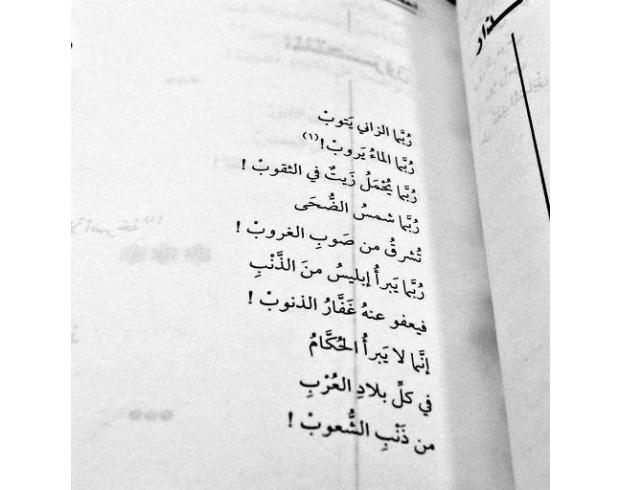 رُبَّما الزاني يَتوبْ
رُبَّما الماءُ يَروبْ!(١)
رُبَّما يُحْمَلُ زَيتٌ في الثقوبْ !
رُبَّما شمسُ الضُّحَى
تُشرقُ من صَوبِ الغروبْ !
رُبَّما يَبرأُ إبليسُ منَ الذَّنْبِ
فيعفو عنهُ غَفَّارُ الذنوبْ !
إنَّما لا يَبرأُ الحُكَّامُ
في كلِّ بلادِ العُرْبِ
من ذَنْبِ الشُّعوبْ !